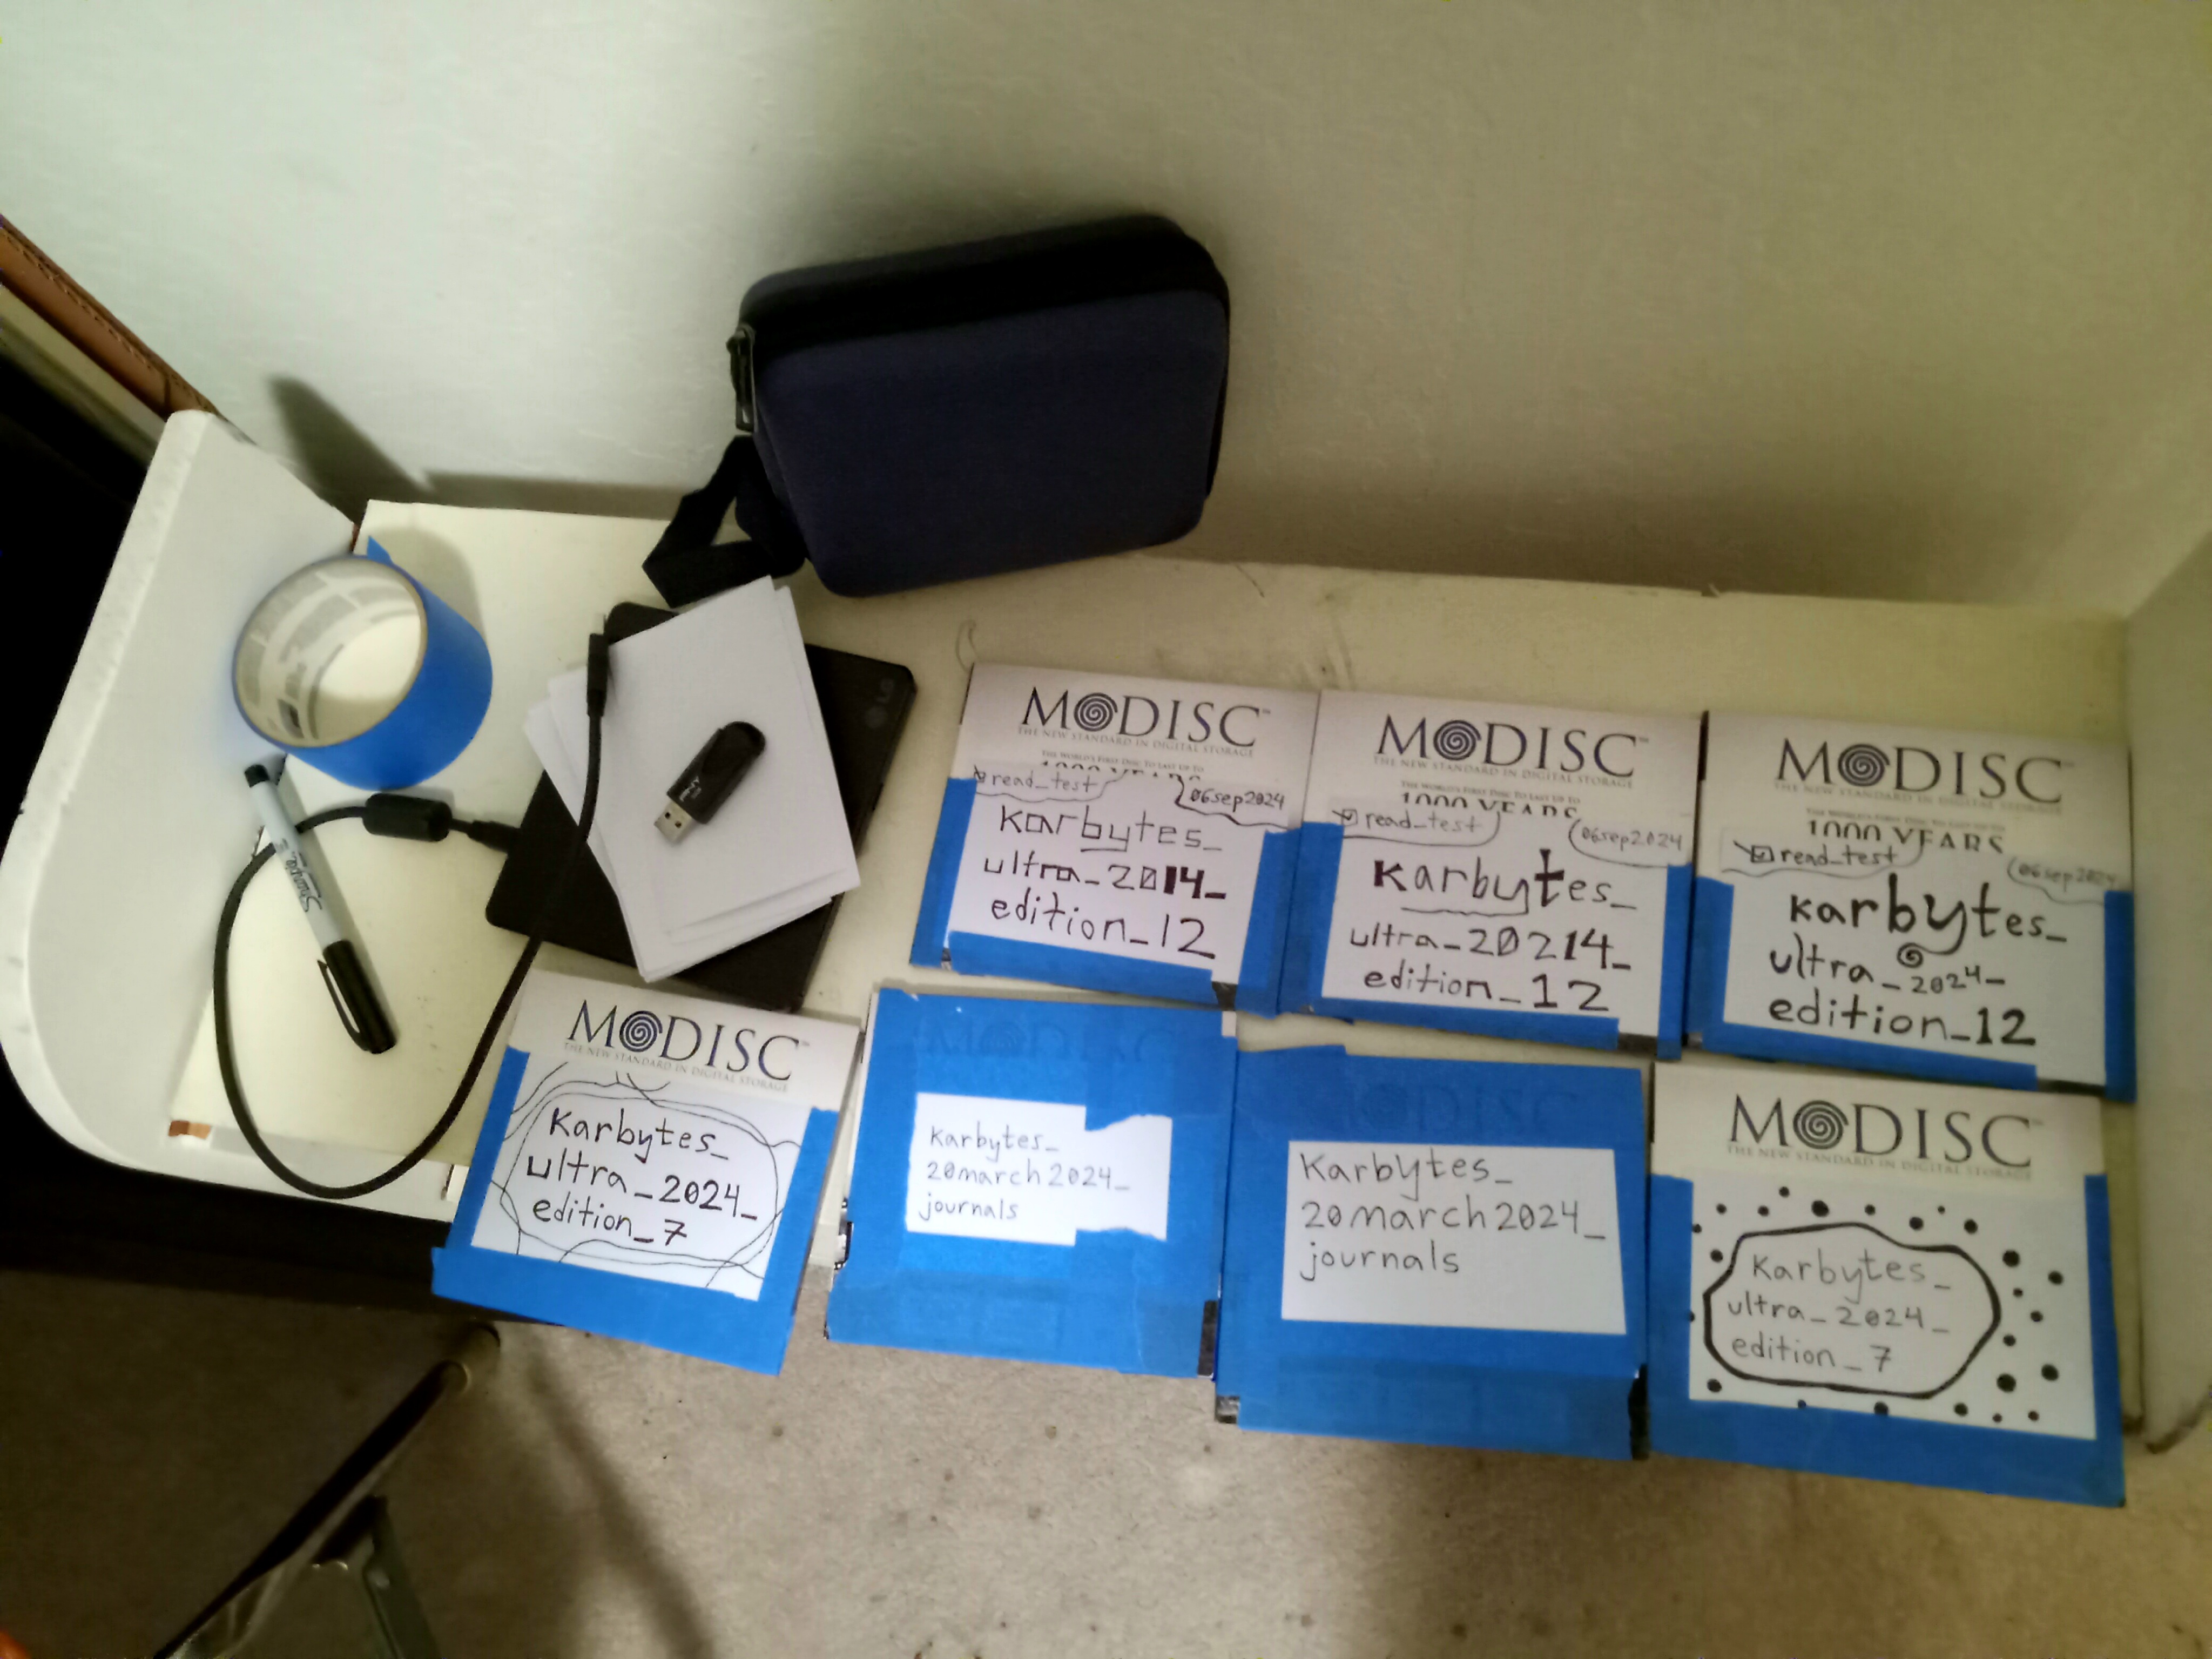 LG
PNY
Sharpie
M DISC™
THE NEW STANDARD IN DIGITAL STORAGE
THE WORLD'S FIRST DISC TO LAST UP TO
1000 YEARS
read_test
06sep2024
karbytes_
ultra_2014_
edition_12
M DISC™
THE NEW STANDARD IN DIGITAL STORAGE
THE WORLD'S FIRST DISC TO LAST UP TO
1000 YEARS
read_test
06sep2024
karbytes_
ultra_20214_
edition_12
M DISC™
THE NEW STANDARD IN DIGITAL STORAGE
THE WORLD'S FIRST DISC TO LAST UP TO
1000 YEARS
read_test
06sep2024
karbytes_
ultra_2024_
edition_12
M DISC™
THE NEW STANDARD IN DIGITAL STORAGE
karbytes_
ultra_2024_
edition_7
M DISC
karbytes_
20march2024_
journals
M DISC
karbytes_
20march2024_
journals
M DISC™
THE NEW STANDARD IN DIGITAL STORAGE
karbytes_
ultra_2024_
edition_7